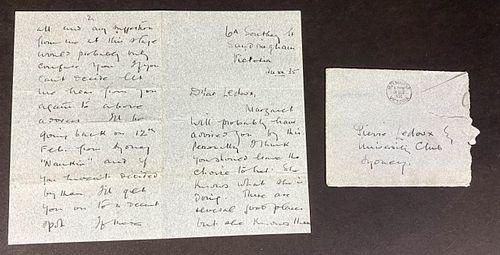 6A Southey St
Sandringham
Victoria
Dear Ledoux,
Margaret
will probably have
advised you by this
personally. I think
you should leave the
choice to her. She
knows what she is
doing. There are
several good places
but she knows them
2.
all and any suggestion
from me at this stage
would probably only
confuse you. If you
can't decide let
me hear from you
again to above
address. I'll be
going back on 12th
Feb. from Sydney
"Nankin" and if
you haven't decided
by then I'll get
you on to a decent
spot. If there
Pierre Ledoux Esq
University Club
Sydney.